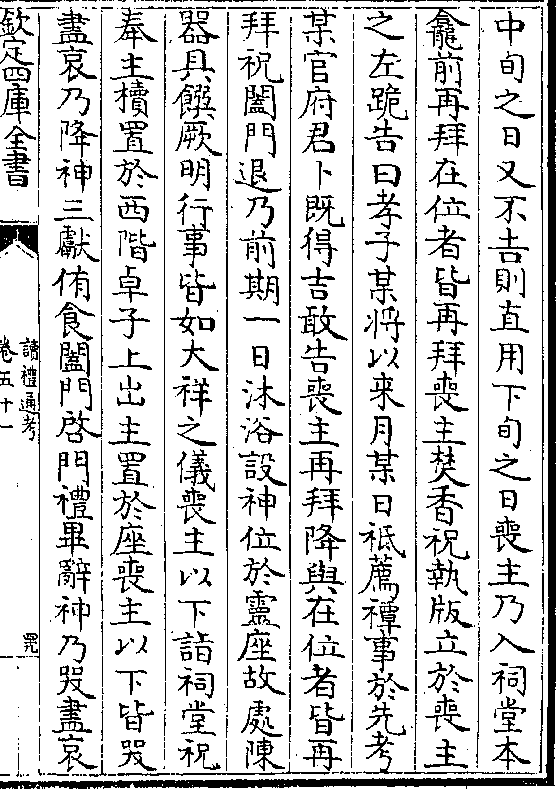 中旬之日又不吉則直用下旬之日喪主乃入祠堂本
龕前再拜在位者皆再拜喪主焚香祝執版立於喪主
之左跪告曰孝子某將以来月某日祗薦禫事於先考
某官府君卜既得吉敢告喪主再拜降與在位者皆再
拜祝闔門退乃前期一日沐浴設神位於靈座故處陳
器具饌厥明行事皆如大祥之儀喪主以下詣祠堂祝
奉主櫝置於西階卓子上出主置於座喪主以下皆哭
盡哀乃降神三獻侑食闔門啓門禮畢辭神乃哭盡哀
欽定四庫全書
讀禮通考
卷五十一
四九